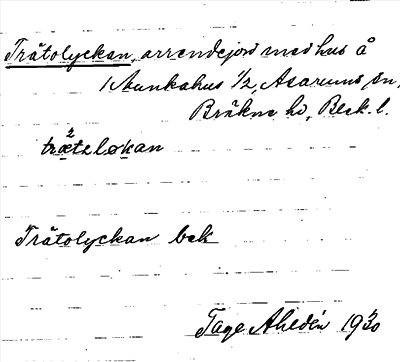 Tråtolyckan, arrendejord med hus å
Munkahus 1/2, Asarums sn,
Bräkne hd, Blek. l.
træteløkan
Tråtolyckan bek
Tage Ahldén 1930